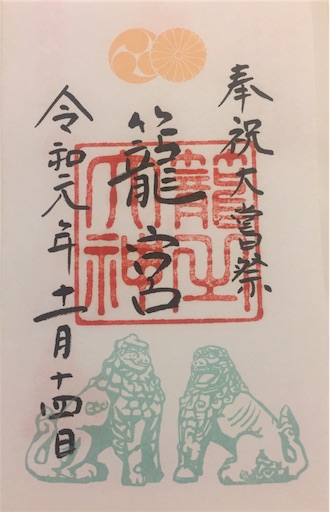 奉祝大嘗祭
籠宮
籠之大神
令和元年十一月十四日